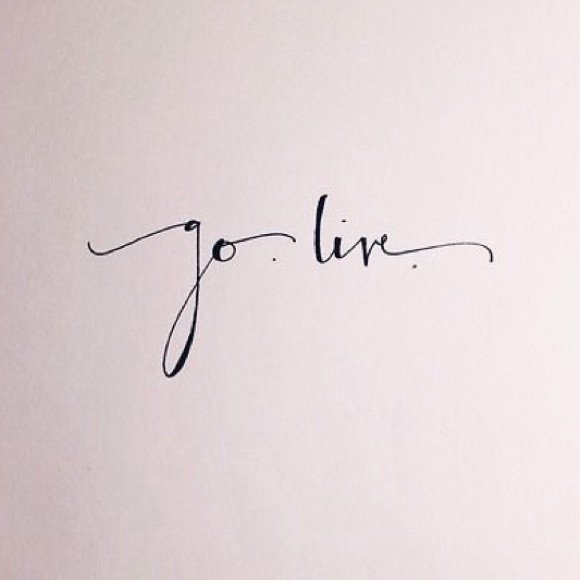 go. live.